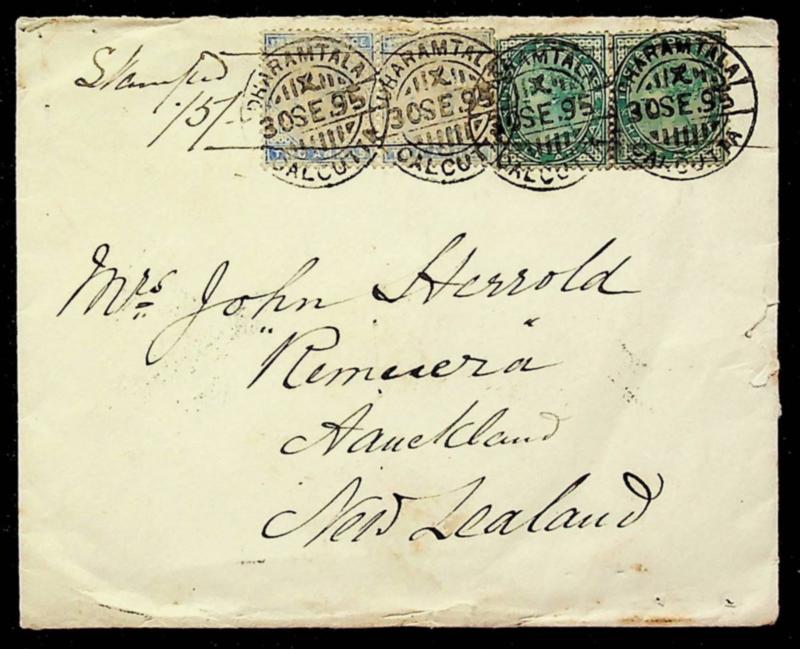 Stamped
/5/-
DHARAMTALA
X
30SE.95
CALCUTTA
DHARAMTALA
X
30SE.95
CALCUTTA
DHARAMTALA
X
30SE.95
CALCUTTA
DHARAMTALA
X
30SE.95
CALCUTTA
Mrs John Herrold
"Remuera"
Aauckland
New Zealand